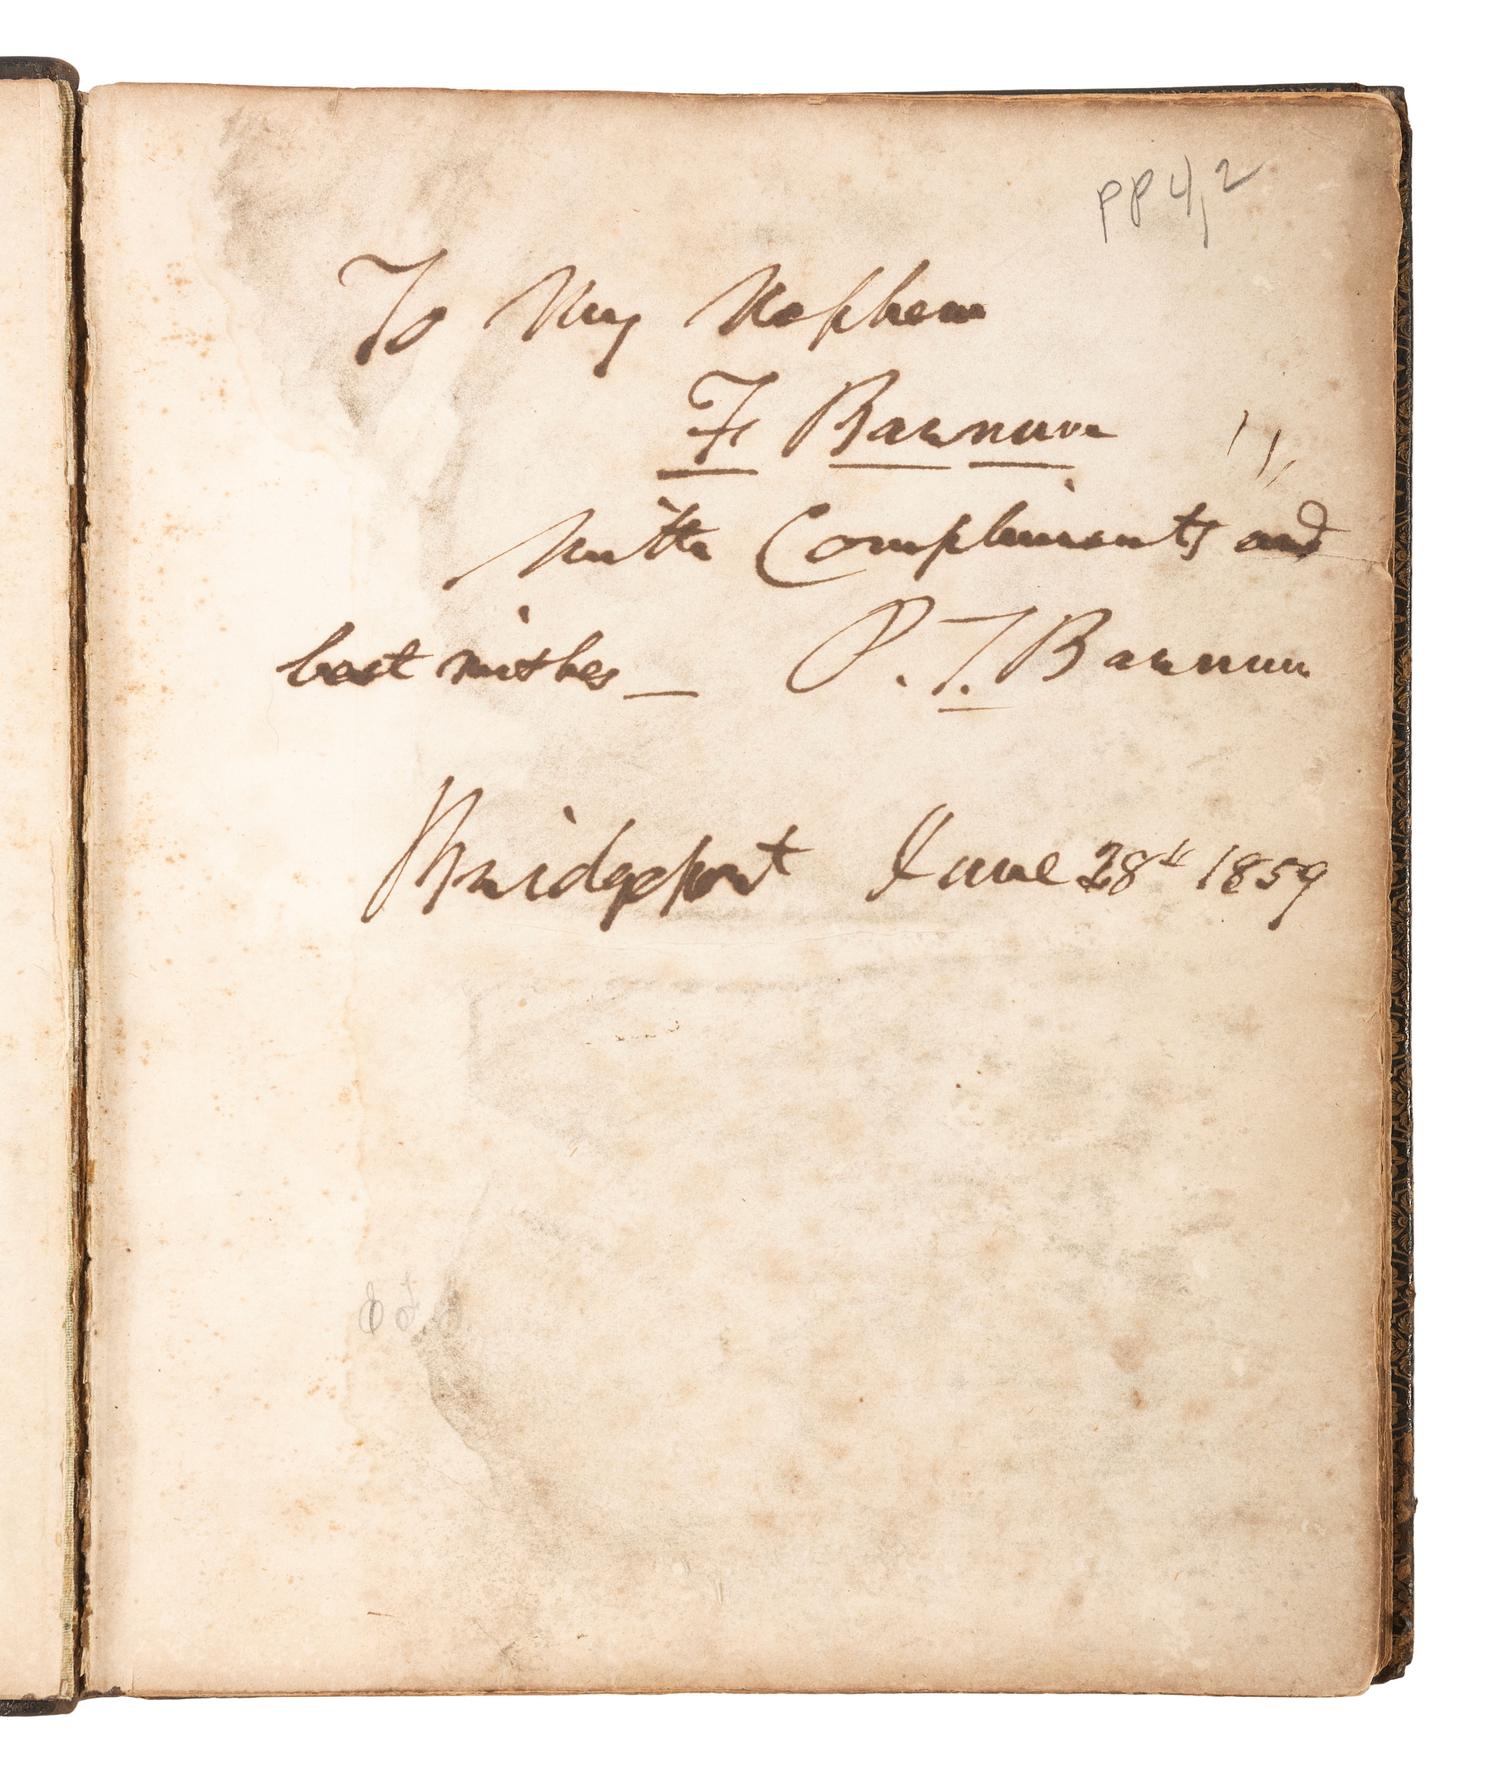 PP 4,2
To My Nephew
F Barnum
With Compliments and
best wishes _ P. T. Barnum
Bridgeport June 28th 1859